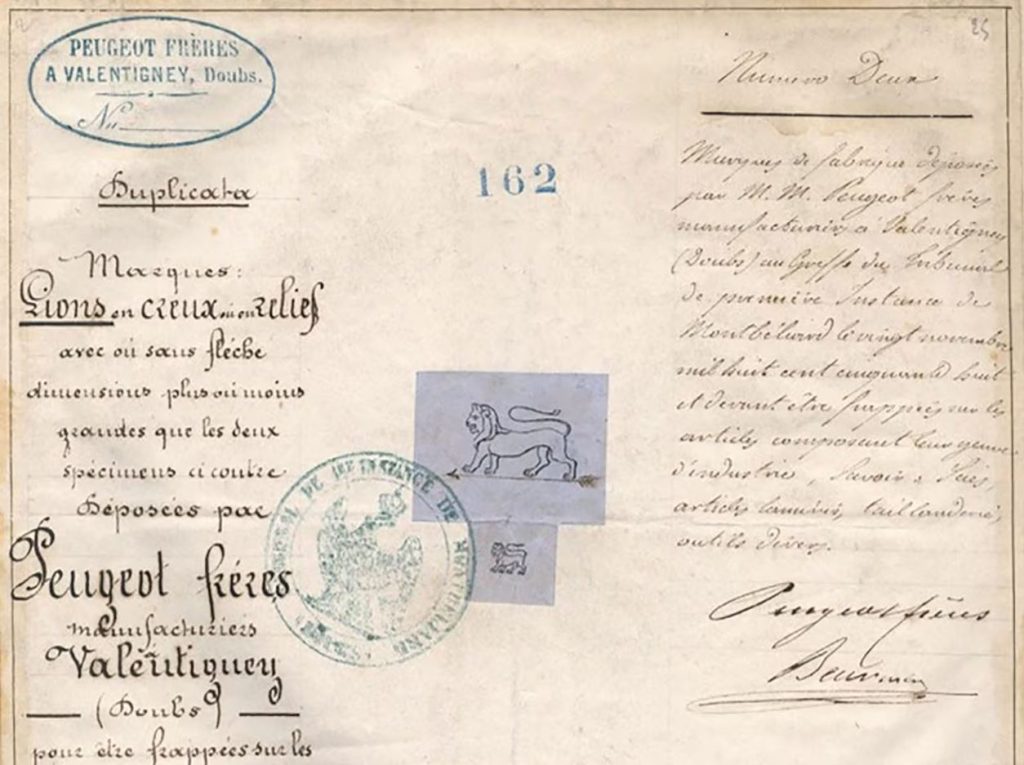 PEUGEOT FRÈRES
A VALENTIGNEY, Doubs.
No
Duplicata
Marques:
Lions en creux ou en relief
avec où sans flêche
dimensions plus où moins
grandes que les deux
spécimens ci contre
Déposées par
Peugeot fréres
manufacturiers
Valentigney
(Doubs)
pour être frappées sur les
162
TRIBUNAL DE 1RE INSTANCE DE MONTBÉLIARD
25
Numéro Deux
Marques de fabrique déposées
par M. M. Peugeot frères
manufacturiers à Valentigney
(Doubs) au Greffe du Tribunal
de première Instance de
Montbéliard le vingt novembre
mil huit cent cinquante huit
et devant être frappées sur les
articles composant leur genre
d'industrie, Savoir: Scies,
articles laminés, taillanderie,
outils divers.
Peugeot frères